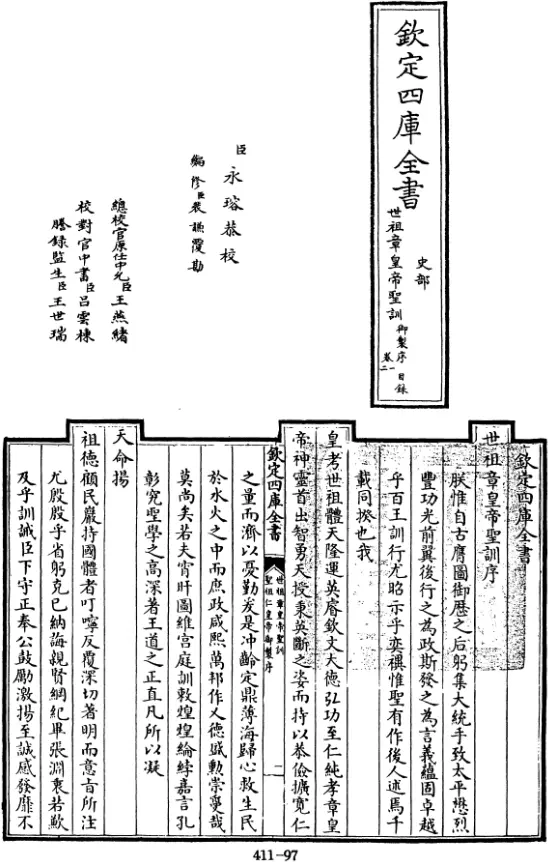 欽定四庫全書
史部
世祖章皇帝聖訓
御製序
目錄
卷一
二
臣永瑢恭校
編修臣裴謙覆勘
總校官原任中允臣王燕緒
校對官中書臣呂雲棟
謄錄監生臣王世瑞
欽定四庫全書
世祖章皇帝聖訓序
朕惟自古膺圖御厯之后躬集大統手致太平懋烈
豐功光前翼後行之為政斯發之為言義蘊固卓越
乎百王訓行尤昭示乎奕禩惟聖有作後人述焉千
載同揆也我
皇考世祖體天隆運英睿欽文大德弘功至仁純孝章皇
帝神靈首出智勇天授秉英斷之姿而持以恭儉擴寬仁
欽定四庫全書
世祖章皇帝聖訓
聖祖仁皇帝御製序
二
之量而濟以憂勤爰是冲齡定鼎薄海歸心救生民
於水火之中而庶政咸熙萬邦作乂德盛勲崇夐哉
莫尚矣若夫宵旰圖維宮庭訓敕煌煌綸綍嘉言孔
彰究聖學之高深著王道之正直凡所以凝
天命揚
祖德顧民嚴持國體者叮嚀反覆深切著明而意旨所注
尤殷殷乎省躬克己納誨親賢綱紀畢張淵衷若歉
及乎訓誡臣下守正奉公鼓勵激揚至誠感發靡不
411-97